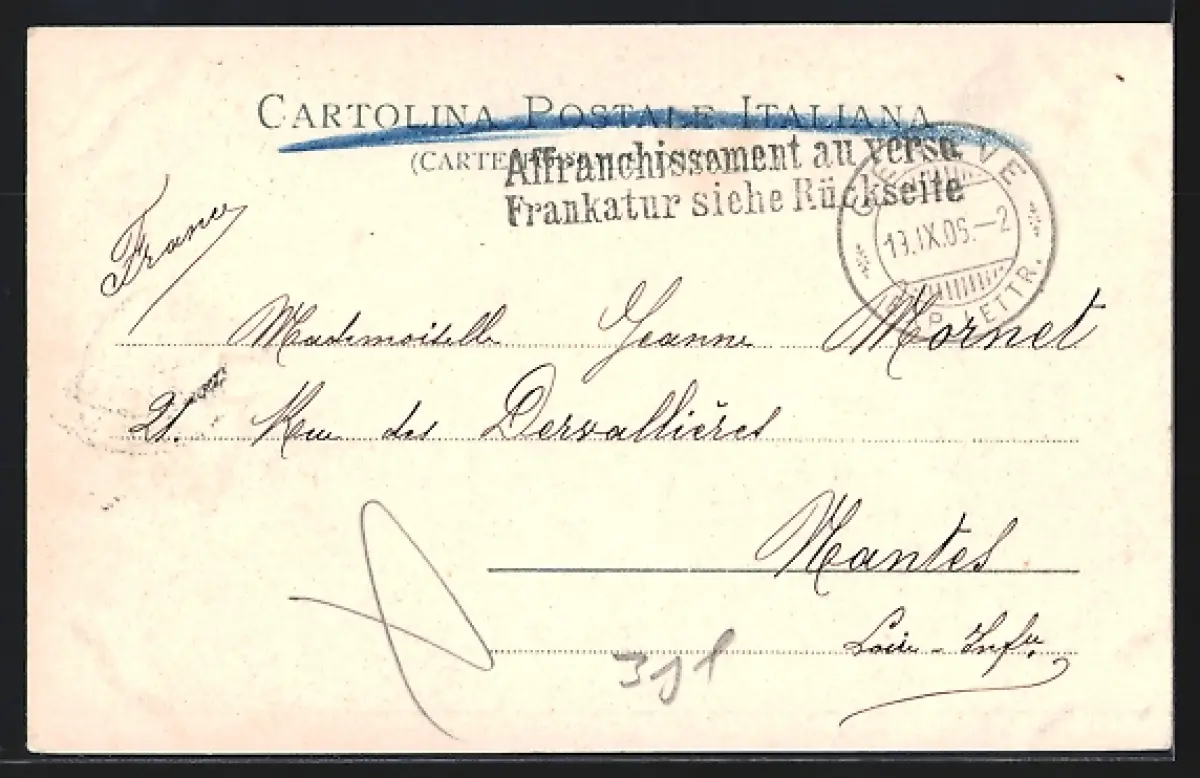 CARTOLINA POSTALE ITALIANA
(CARTE
Affranchissement au verso.
Frankatur siehe Rückseite
GENÈVE
13.IX.05.—2
EXP. LETTR.
France
Mademoiselle Jeanne Mornet
21. Rue des Dervallières
Nantes
Loire-Infre.